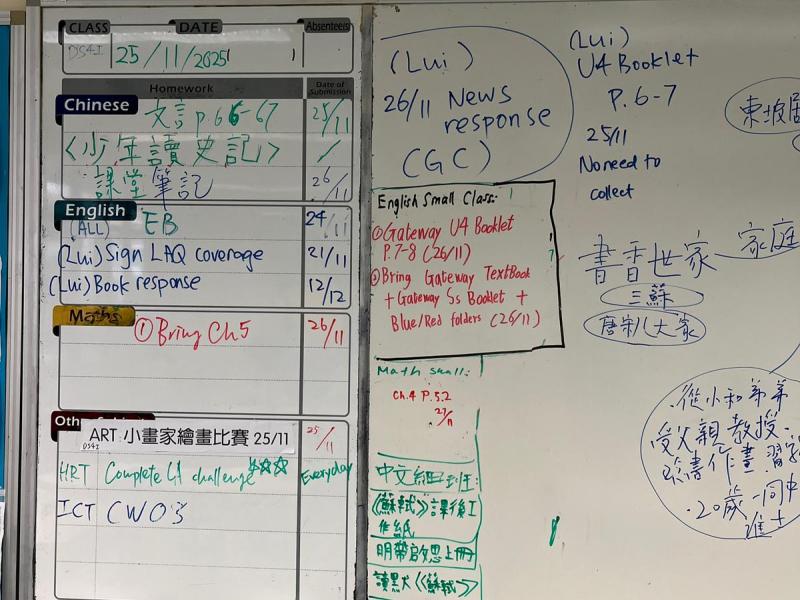 CLASS DATE Absentees
DS4I 25/11/2025
Homework Date of Submission
Chinese 文言 p.66-67 25/11
《少年讀史記》
課堂筆記 26/11
English (ALL) EB 24/11
(Lui) Sign LAQ coverage 21/11
(Lui) Book response 12/12
Maths ① Bring Ch5 26/11
ART 小畫家繪畫比賽 25/11 25/11
DS4I
HRT Complete challenge Everyday
ICT CWO3
(Lui)
26/11 News
response
(GC)
English Small Class:
① Gateway U4 Booklet
P.7-8 (26/11)
② Bring Gateway TextBook
+ Gateway Ss Booklet +
Blue/Red folders (26/11)
Math small:
Ch.4 P.52
27/11
中文細班:
《蘇軾》課後工
作紙
明帶啟思上冊
讀默《蘇軾》
(Lui)
U4 Booklet
P.6-7
25/11
No need to
collect
東坡居
書香世家 家庭
三蘇
唐宋八大家
從小和弟弟
受父親教授
書作畫
20歲一同中
進士